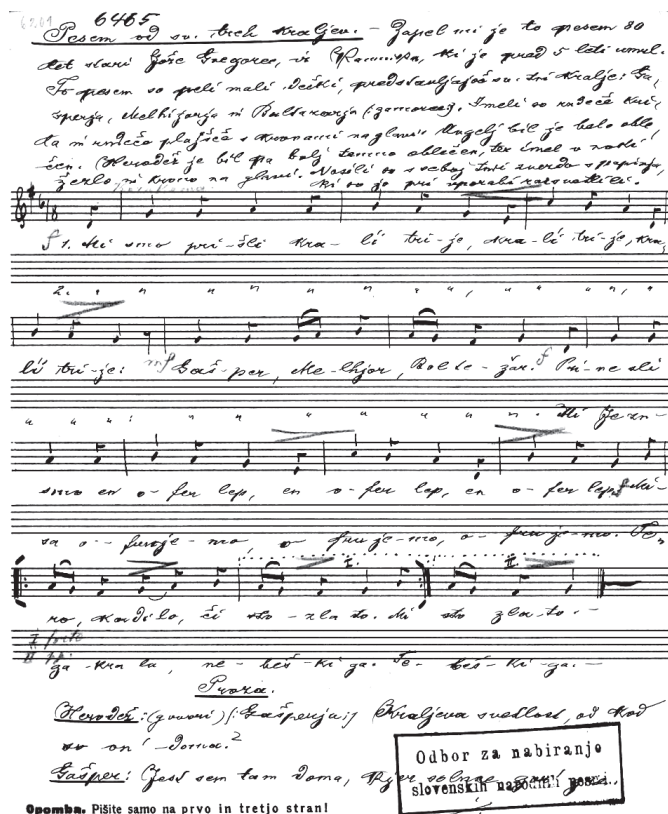 6201
6465
Pesem od sv. treh kraljev. – Zapel mi je to pesem 80
let stari Jože Gregorec, iz, ki je pred 5 leti umrl.
To pesem so peli mali dečki, predstavljajoč sv. tri kralje: Ga-
šperja, Melhijorja in Boltazarja (zamorca). Imeli so rudeče
ta in rudeče plajšče s kronami na glavi. Angelj bil je belo oble-
čen. Herodež je bil pa bolj temno oblečen, ter imel v roki
žezlo in krono na glavi. Nosili so s seboj tri
ki so jo pri uporabi razsvetlili.
f 1. Mi smo pri-šli kra- li tri-je, kra-li tri-je, kra-
2. " " " " " " " " " "
li tri-je: mf Gaš-per, Me-lhjor, Bolte-žar. f Pri-ne sli
" " " : " " " " " " . Mi Jezu-
smo en o-fer lep, en o-fer lep, en o-fer lep, f Mi-
sa o-- fruje-mo, o- fruje-mo, o- fruje-mo. Te-
I. II.
ro, kadilo, či sto-zla to. Mi sto zlato.-
I forte
II pp.
ga -kra la, ne- beš-ki ga. Te- beš-ki-ga.-
Proza.
Herodež: (govori) /: Gašperja:/ Kraljeva svetlost, od kod
so oni doma?
Gašper: Jest sem tam doma, kjer solnce gori
Odbor za nabiranje
slovenskih narodnih pesmi.
Opomba. Pišite samo na prvo in tretjo stran!